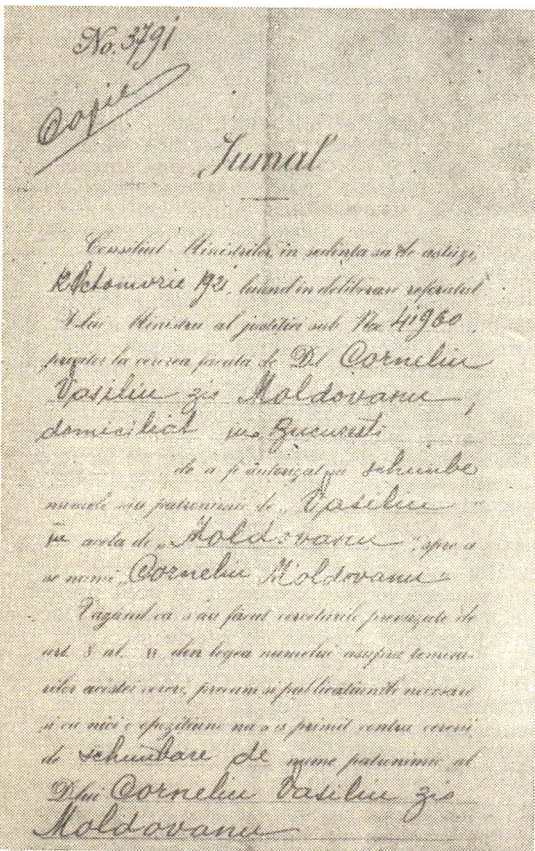 No. 3791
Copie
Jurnal
Consiliul Miniștrilor, în ședința sa de astăzi,
12 Octomvrie 1921, luând în deliberare referatul
D-lui Ministru al justiției sub No. 41960
privitor la cererea făcută de Dl Corneliu
Vasiliu zis Moldovanu,
domiciliat în București
de a fi autorizat să schimbe
numele său patronimic de „Vasiliu"
în acela de „Moldovanu", spre a
se numi „Corneliu Moldovanu"
Văzând că s'au făcut cercetările prevăzute de
art. 8 al. II din legea numelui asupra temeiu-
rilor acestei cereri, precum și publicațiunile necesare
și că nici o opozițiune nu s'a primit contra cererii
de schimbare de nume patronimic al
D-lui Corneliu Vasiliu zis
Moldovanu